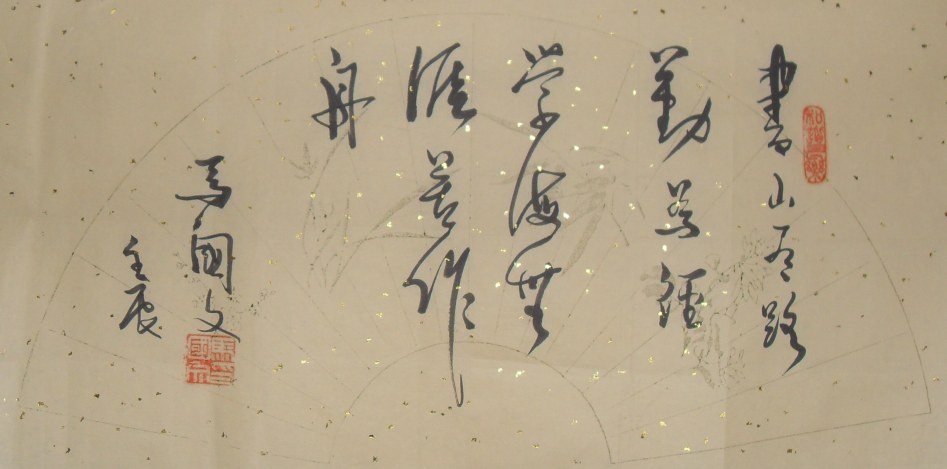 書山有路
勤為徑
學海無
涯苦作
舟
馬國文
壬辰